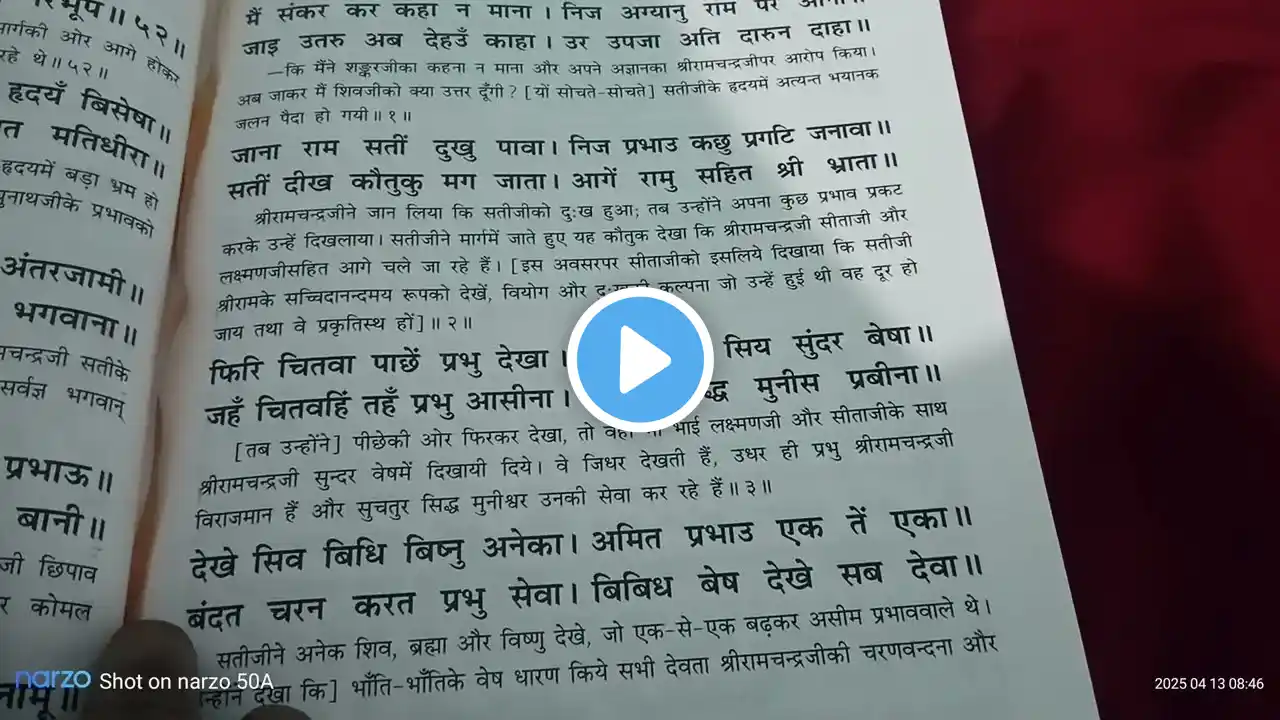 रिभूप॥ ५२॥
मार्गकी ओर आगे होकर
रहे थे॥ ५२॥
हृदयँ बिसेषा॥
मतिधीरा॥
हृदयमें बड़ा भ्रम हो
रघुनाथजीके प्रभावको
अंतरजामी॥
भगवाना॥
सतीके
सर्वज्ञ भगवान्
प्रभाऊ॥
बानी॥
छिपाव
कोमल
मैं संकर कर कहा न माना। निज अग्यानु राम पर
जाइ उतरु अब देहउँ काहा। उर उपजा अति दारुन दाहा॥
—कि मैंने शङ्करजीका कहना न माना और अपने अज्ञानका श्रीरामचन्द्रजीपर आरोप किया।
अब जाकर मैं शिवजीको क्या उत्तर दूँगी? [यों सोचते-सोचते] सतीजीके हृदयमें अत्यन्त भयानक
जलन पैदा हो गयी॥ १॥
जाना राम सतीं दुखु पावा। निज प्रभाउ कछु प्रगटि जनावा॥
सतीं दीख कौतुकु मग जाता। आगें रामु सहित श्री भ्राता॥
श्रीरामचन्द्रजीने जान लिया कि सतीजीको दुःख हुआ; तब उन्होंने अपना कुछ प्रभाव प्रकट
करके उन्हें दिखलाया। सतीजीने मार्गमें जाते हुए यह कौतुक देखा कि श्रीरामचन्द्रजी सीताजी और
लक्ष्मणजीसहित आगे चले जा रहे हैं। [इस अवसरपर सीताजीको इसलिये दिखाया कि सतीजी
श्रीरामके सच्चिदानन्दमय रूपको देखें, वियोग और कल्पना जो उन्हें हुई थी वह दूर हो
जाय तथा वे प्रकृतिस्थ हों]॥ २॥
फिरि चितवा पाछें प्रभु देखा। सिय सुंदर बेषा॥
जहँ चितवहिं तहँ प्रभु आसीना। मुनीस प्रबीना॥
[तब उन्होंने] पीछेकी ओर फिरकर देखा, तो भाई लक्ष्मणजी और सीताजीके साथ
श्रीरामचन्द्रजी सुन्दर वेषमें दिखायी दिये। वे जिधर देखती हैं, उधर ही प्रभु श्रीरामचन्द्रजी
विराजमान हैं और सुचतुर सिद्ध मुनीश्वर उनकी सेवा कर रहे हैं॥ ३॥
देखे सिव बिधि बिष्नु अनेका। अमित प्रभाउ एक तें एका॥
बंदत चरन करत प्रभु सेवा। बिबिध बेष देखे सब देवा॥
सतीजीने अनेक शिव, ब्रह्मा और विष्णु देखे, जो एक-से-एक बढ़कर असीम प्रभाववाले थे।
देखा कि] भाँति-भाँतिके वेष धारण किये सभी देवता श्रीरामचन्द्रजीकी चरणवन्दना और
narzo Shot on narzo 50A
2025 04 13 08:46